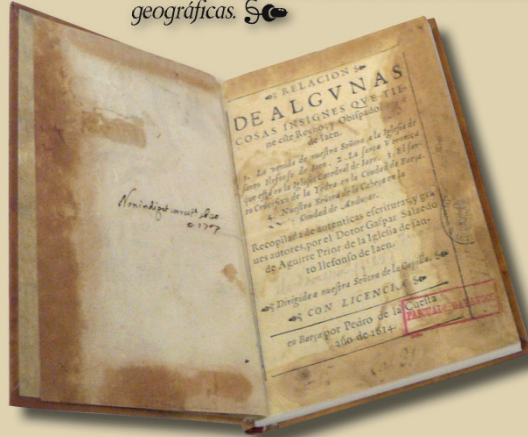 geográficas.
RELACION
DE ALGVNAS
COSAS INSIGNES QVE TIE-
ne este Reyno, y Obispado
de Iaen.
1. La venida de nuestra Señora a la Iglesia de
santo Ilefonso de Iaen. 2. La santa Veronica
que està en la Iglesia Catedral de Iaen. 3. El san-
to Crucifixo de la Yedra en la Ciudad de Baeça.
4. Nuestra Señora de la Cabeça en la
Ciudad de Andujar.
Recopilada de autenticas escrituras, y gra
ues autores, por el Dotor Gaspar Salzedo
de Aguirre Prior de la Iglesia de san-
to Ilefonso de Iaen.
Dirigida a nuestra Señora de la Capilla.
CON LICENCIA,
en Baeça por Pedro de la Cuesta
año de 1614.